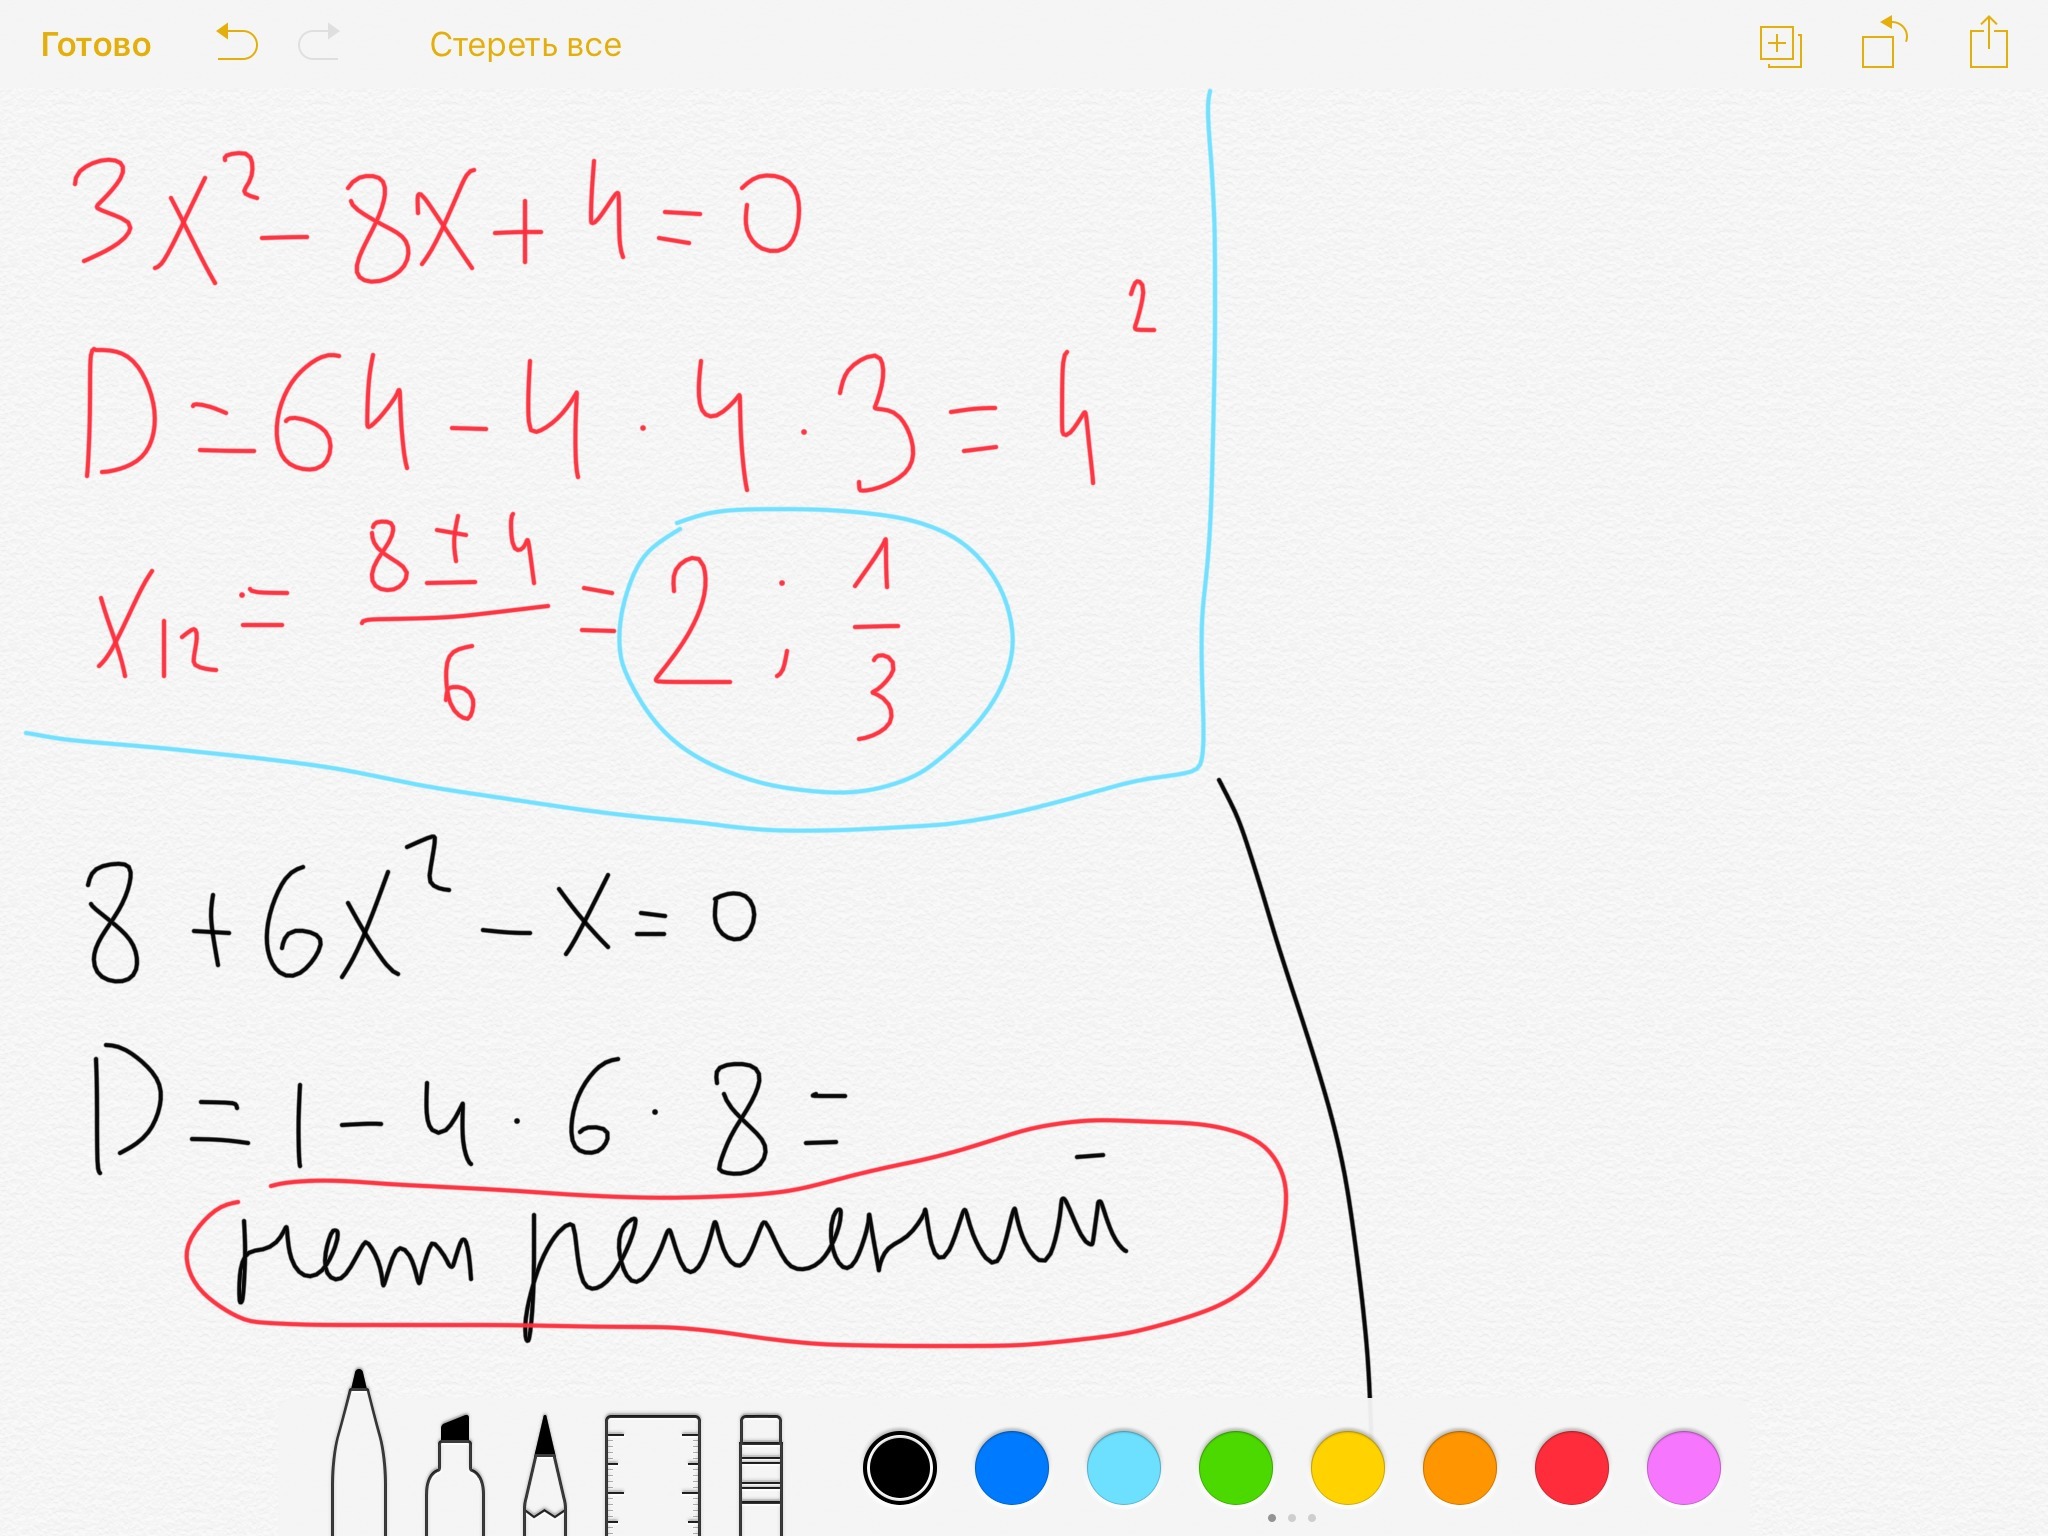 Готово Стереть все
3x² - 8x + 4 = 0
D = 64 - 4 · 4 · 3 = 4²
x₁₂ = (8 ± 4)/6 = 2 ; 1/3
8 + 6x² - x = 0
D = 1 - 4 · 6 · 8 =
нет решений